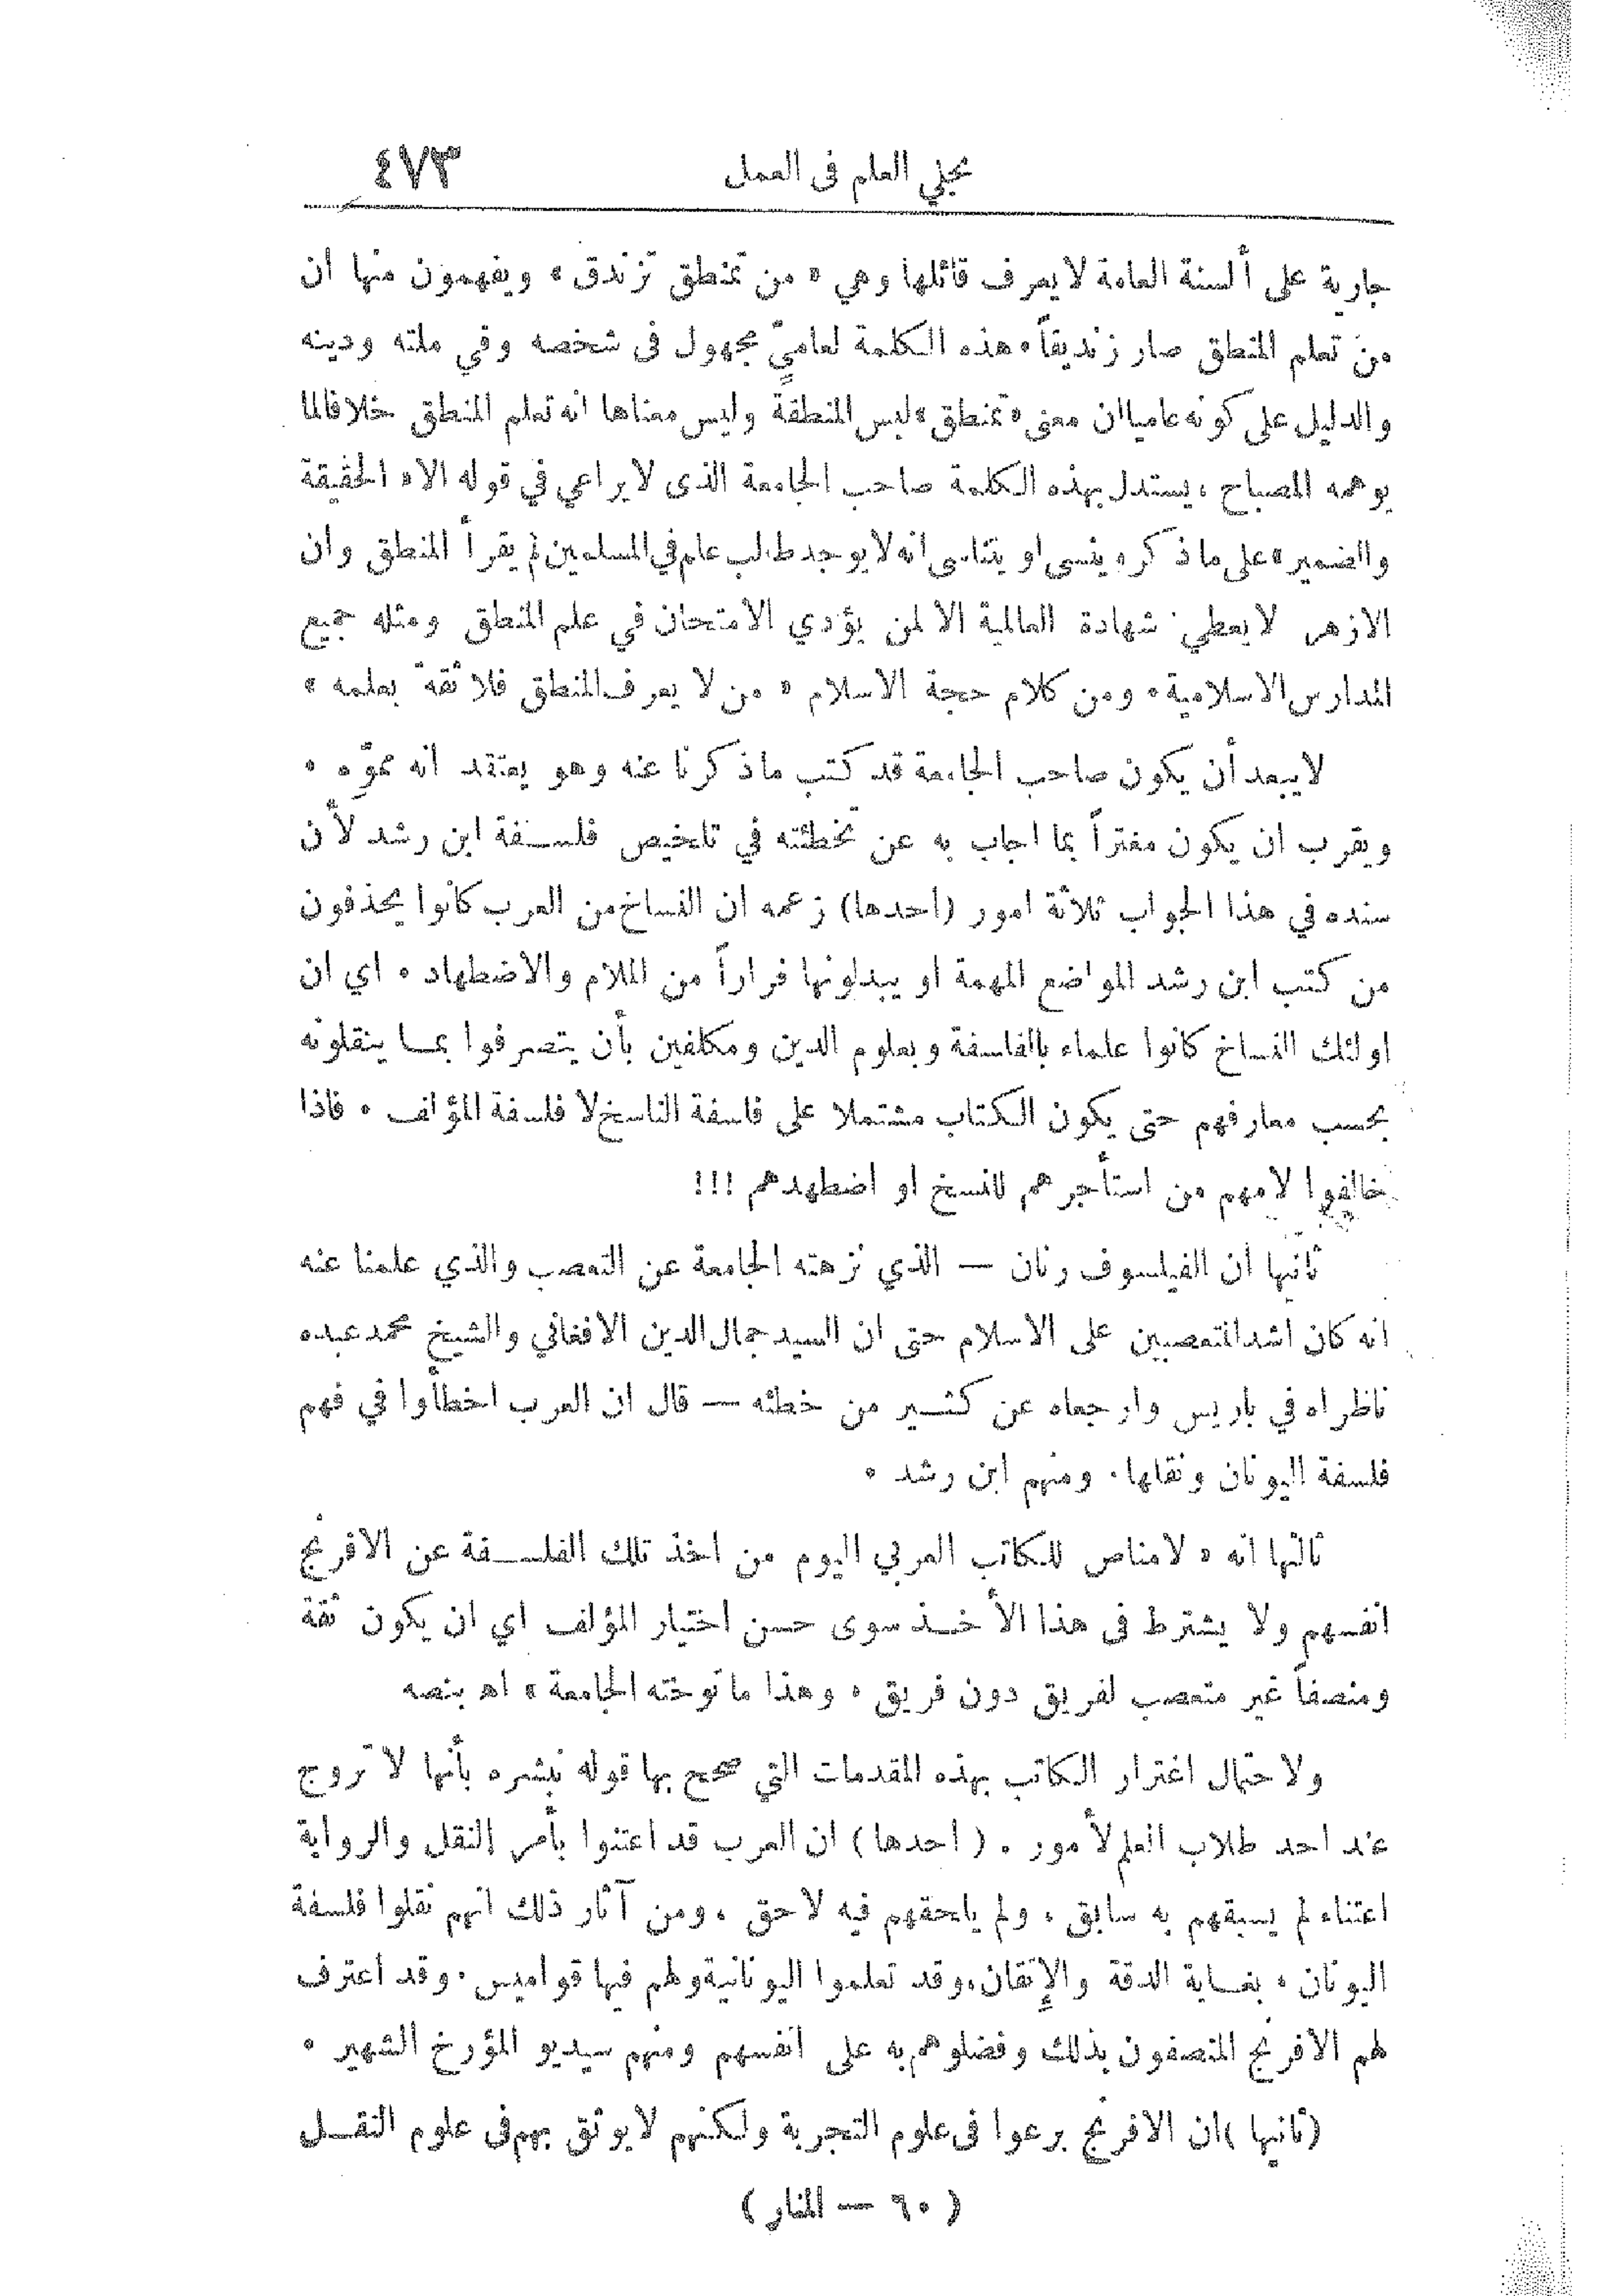 ٤٧٣
تجلي العلم فى العمل
جارية على ألسنة العامة لا يعرف قائلها وهي « من تمنطق تزندق » ويفهمون منها ان
من تعلم المنطق صار زنديقاً. هذه الكلمة لعاميّ مجهول فى شخصه وفي ملته ودينه
والدليل على كونه عاميا ان معنى «تمنطق» لبس المنطقة وليس معناها انه تعلم المنطق خلافا لما
يوهمه المصباح، يستدل بهذه الكلمة صاحب الجامعة الذى لا يراعي في قوله الا « الحقيقة
والضمير» على ما ذكره وينسى او يتناسى انه لا يوجد طالب علم في المسلمين لم يقرأ المنطق وان
الازهر لا يعطي شهادة العالمية الا لمن يؤدي الامتحان في علم المنطق ومثله جميع
المدارس الاسلامية. ومن كلام حجة الاسلام « من لا يعرف المنطق فلا ثقة بعلمه »
لا يبعد أن يكون صاحب الجامعة قد كتب ما ذكرنا عنه وهو يعتقد انه مموّه .
ويقرب ان يكون مغتراً بما اجاب به عن تخطئته في تلخيص فلسفة ابن رشد لأن
سنده في هذا الجواب ثلاثة امور (احدها) زعمه ان النساخ من العرب كانوا يحذفون
من كتب ابن رشد المواضع المهمة او يبدلونها فراراً من الملام والاضطهاد . اي ان
اولئك النساخ كانوا علماء بالفلسفة وبعلوم الدين ومكلفين بأن يتصرفوا بما ينقلونه
بحسب معارفهم حتى يكون الكتاب مشتملا على فلسفة الناسخ لا فلسفة المؤلف . فاذا
خالفوا لامهم من استأجرهم للنسخ او اضطهدهم !!!
ثانيها ان الفيلسوف رنان — الذي نزهته الجامعة عن التعصب والذي علمنا عنه
انه كان اشد المتعصبين على الاسلام حتى ان السيد جمال الدين الافغاني والشيخ محمد عبده
ناظراه في باريس وارجعاه عن كثير من خطئه — قال ان العرب اخطأوا في فهم
فلسفة اليونان ونقلها. ومنهم ابن رشد .
ثالثها انه « لا مناص للكاتب العربي اليوم من اخذ تلك الفلسفة عن الافرنج
انفسهم ولا يشترط فى هذا الأخذ سوى حسن اختيار المؤلف اي ان يكون ثقة
ومنصفاً غير متعصب لفريق دون فريق . وهذا ما توخته الجامعة » اه بنصه
ولاحتمال اغترار الكاتب بهذه المقدمات التي صحح بها قوله نبشره بأنها لا تروج
عند احد طلاب العلم لأمور . (احدها) ان العرب قد اعتنوا بأمر النقل والرواية
اعتناء لم يسبقهم به سابق، ولم يلحقهم فيه لاحق، ومن آثار ذلك انهم نقلوا فلسفة
اليونان، بغاية الدقة والإتقان، وقد تعلموا اليونانية ولهم فيها قواميس. وقد اعترف
لهم الافرنج المنصفون بذلك وفضلوهم به على انفسهم ومنهم سيديو المؤرخ الشهير .
(ثانيها) ان الافرنج برعوا فى علوم التجربة ولكنهم لا يوثق بهم فى علوم النقل
( ٦٠ — المنار )